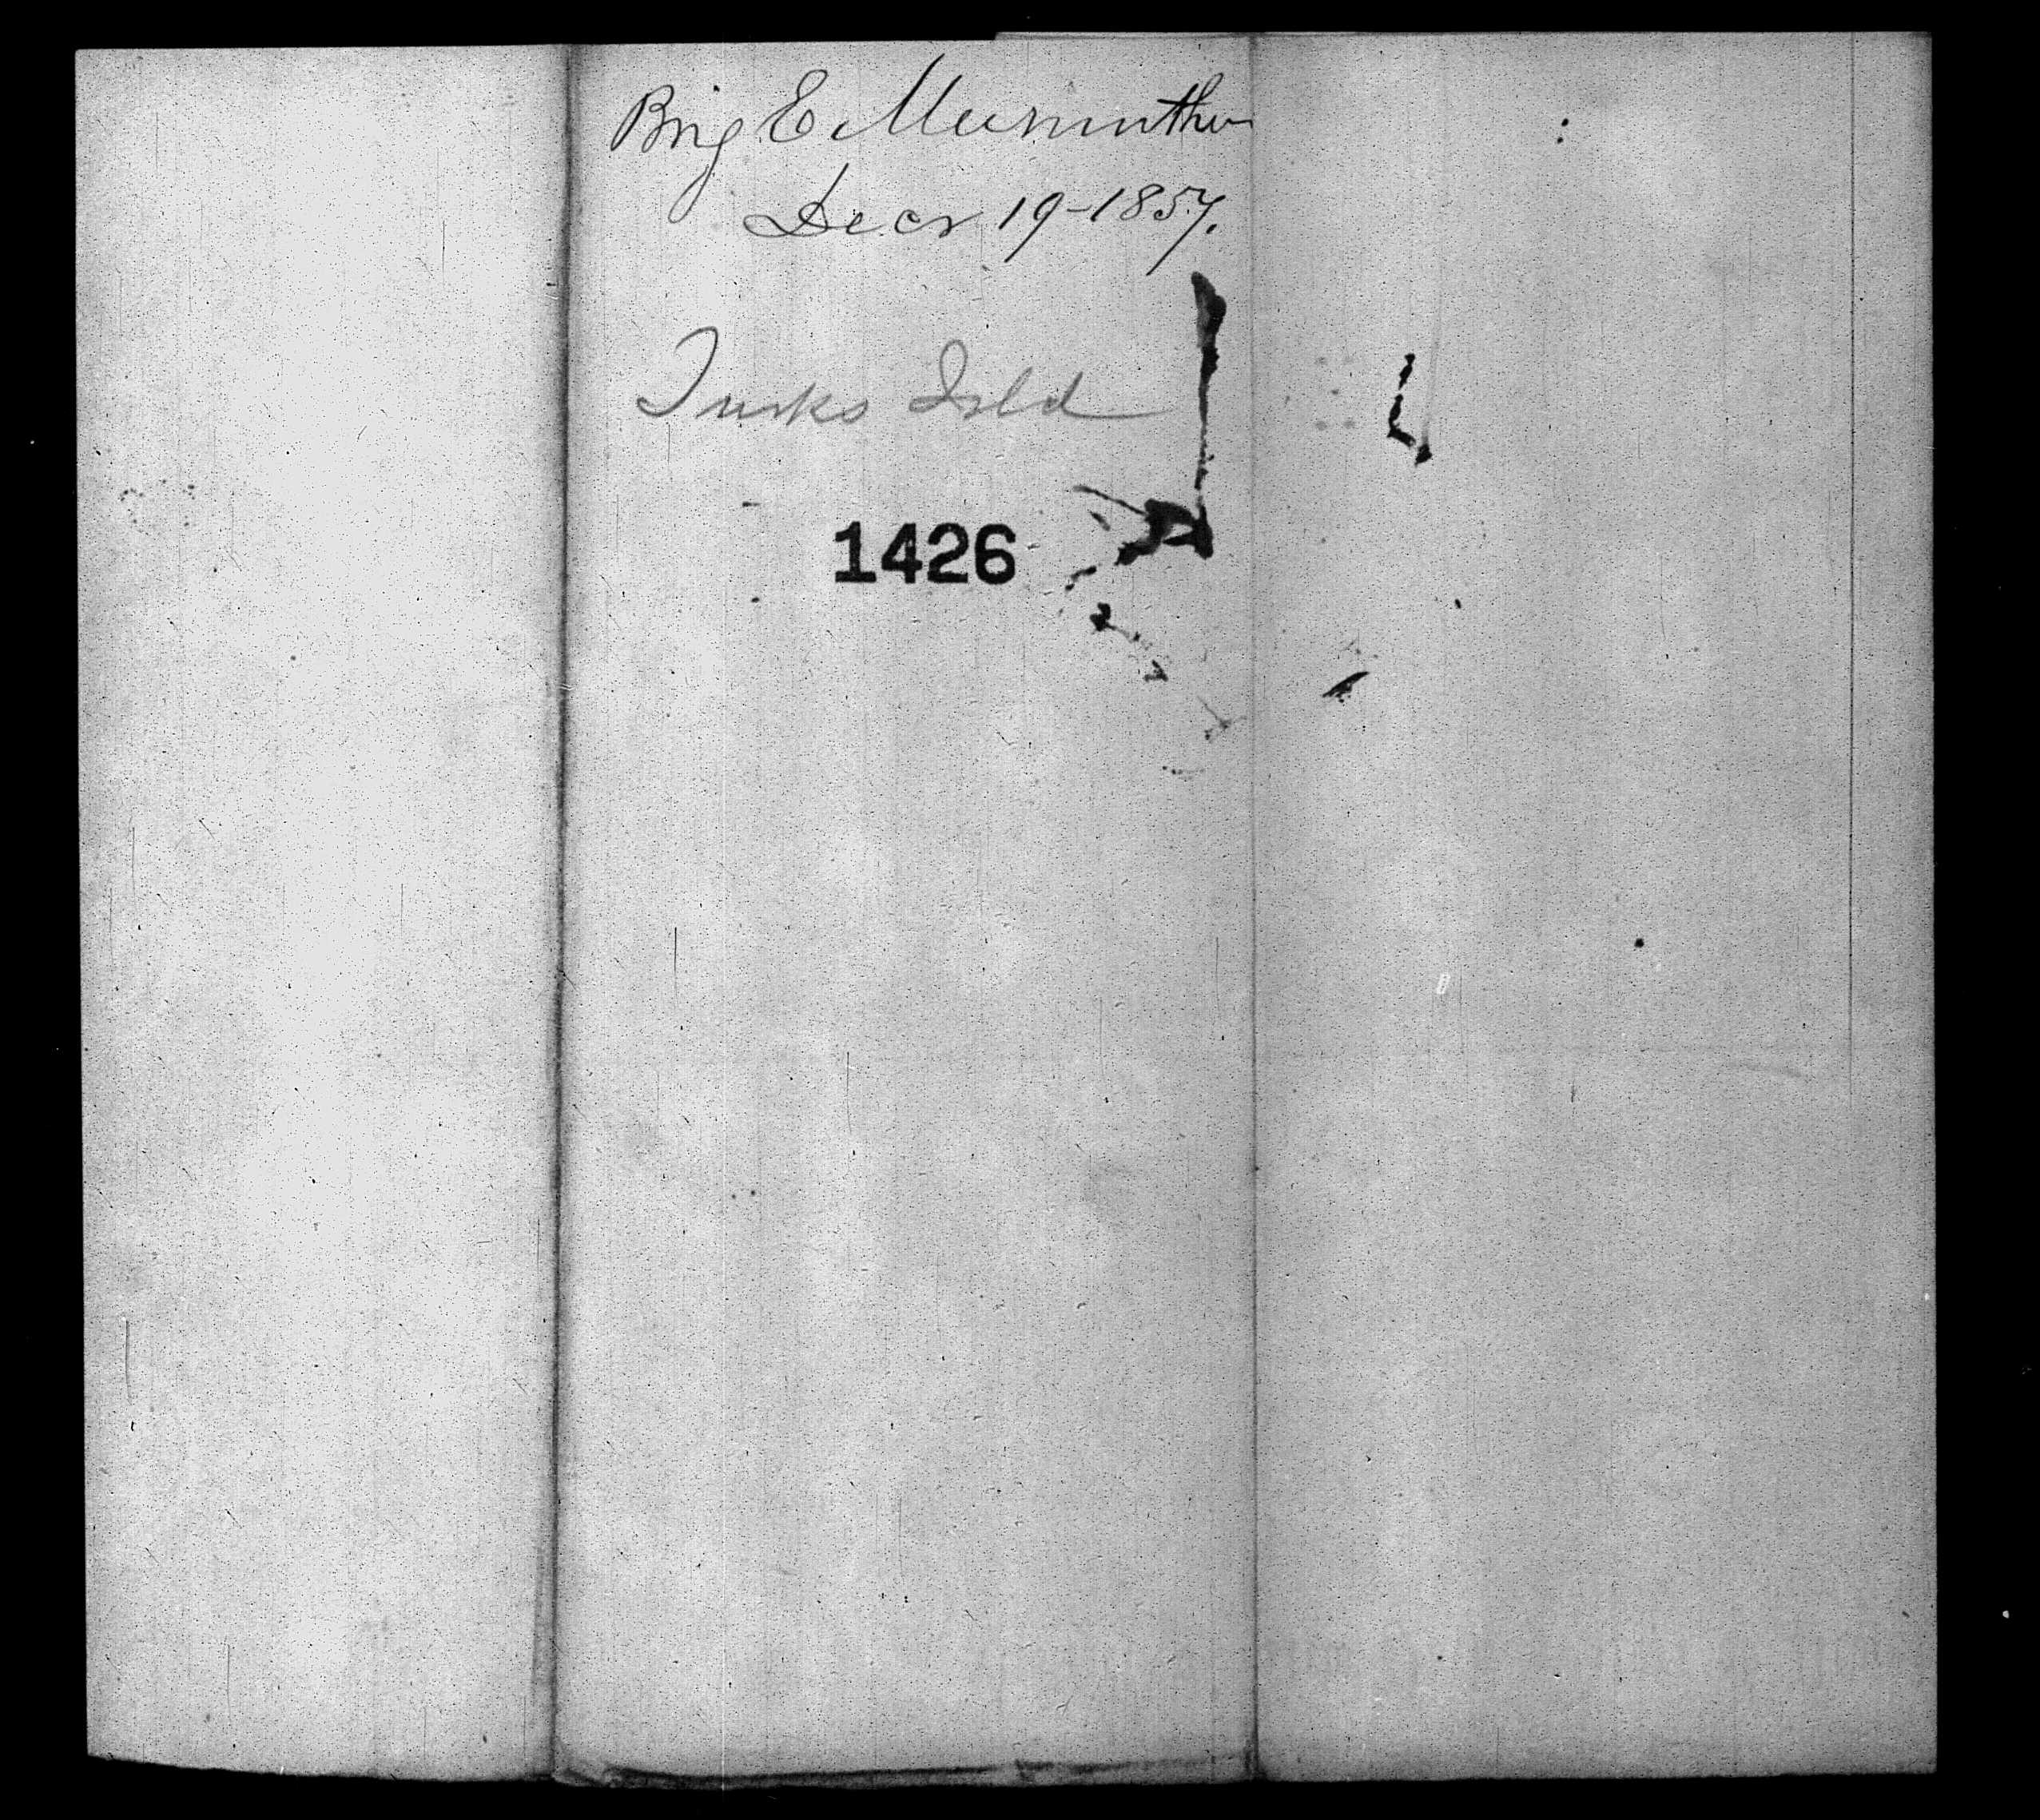 Brig E
Decr 19-1857.
Turks Isld
1426